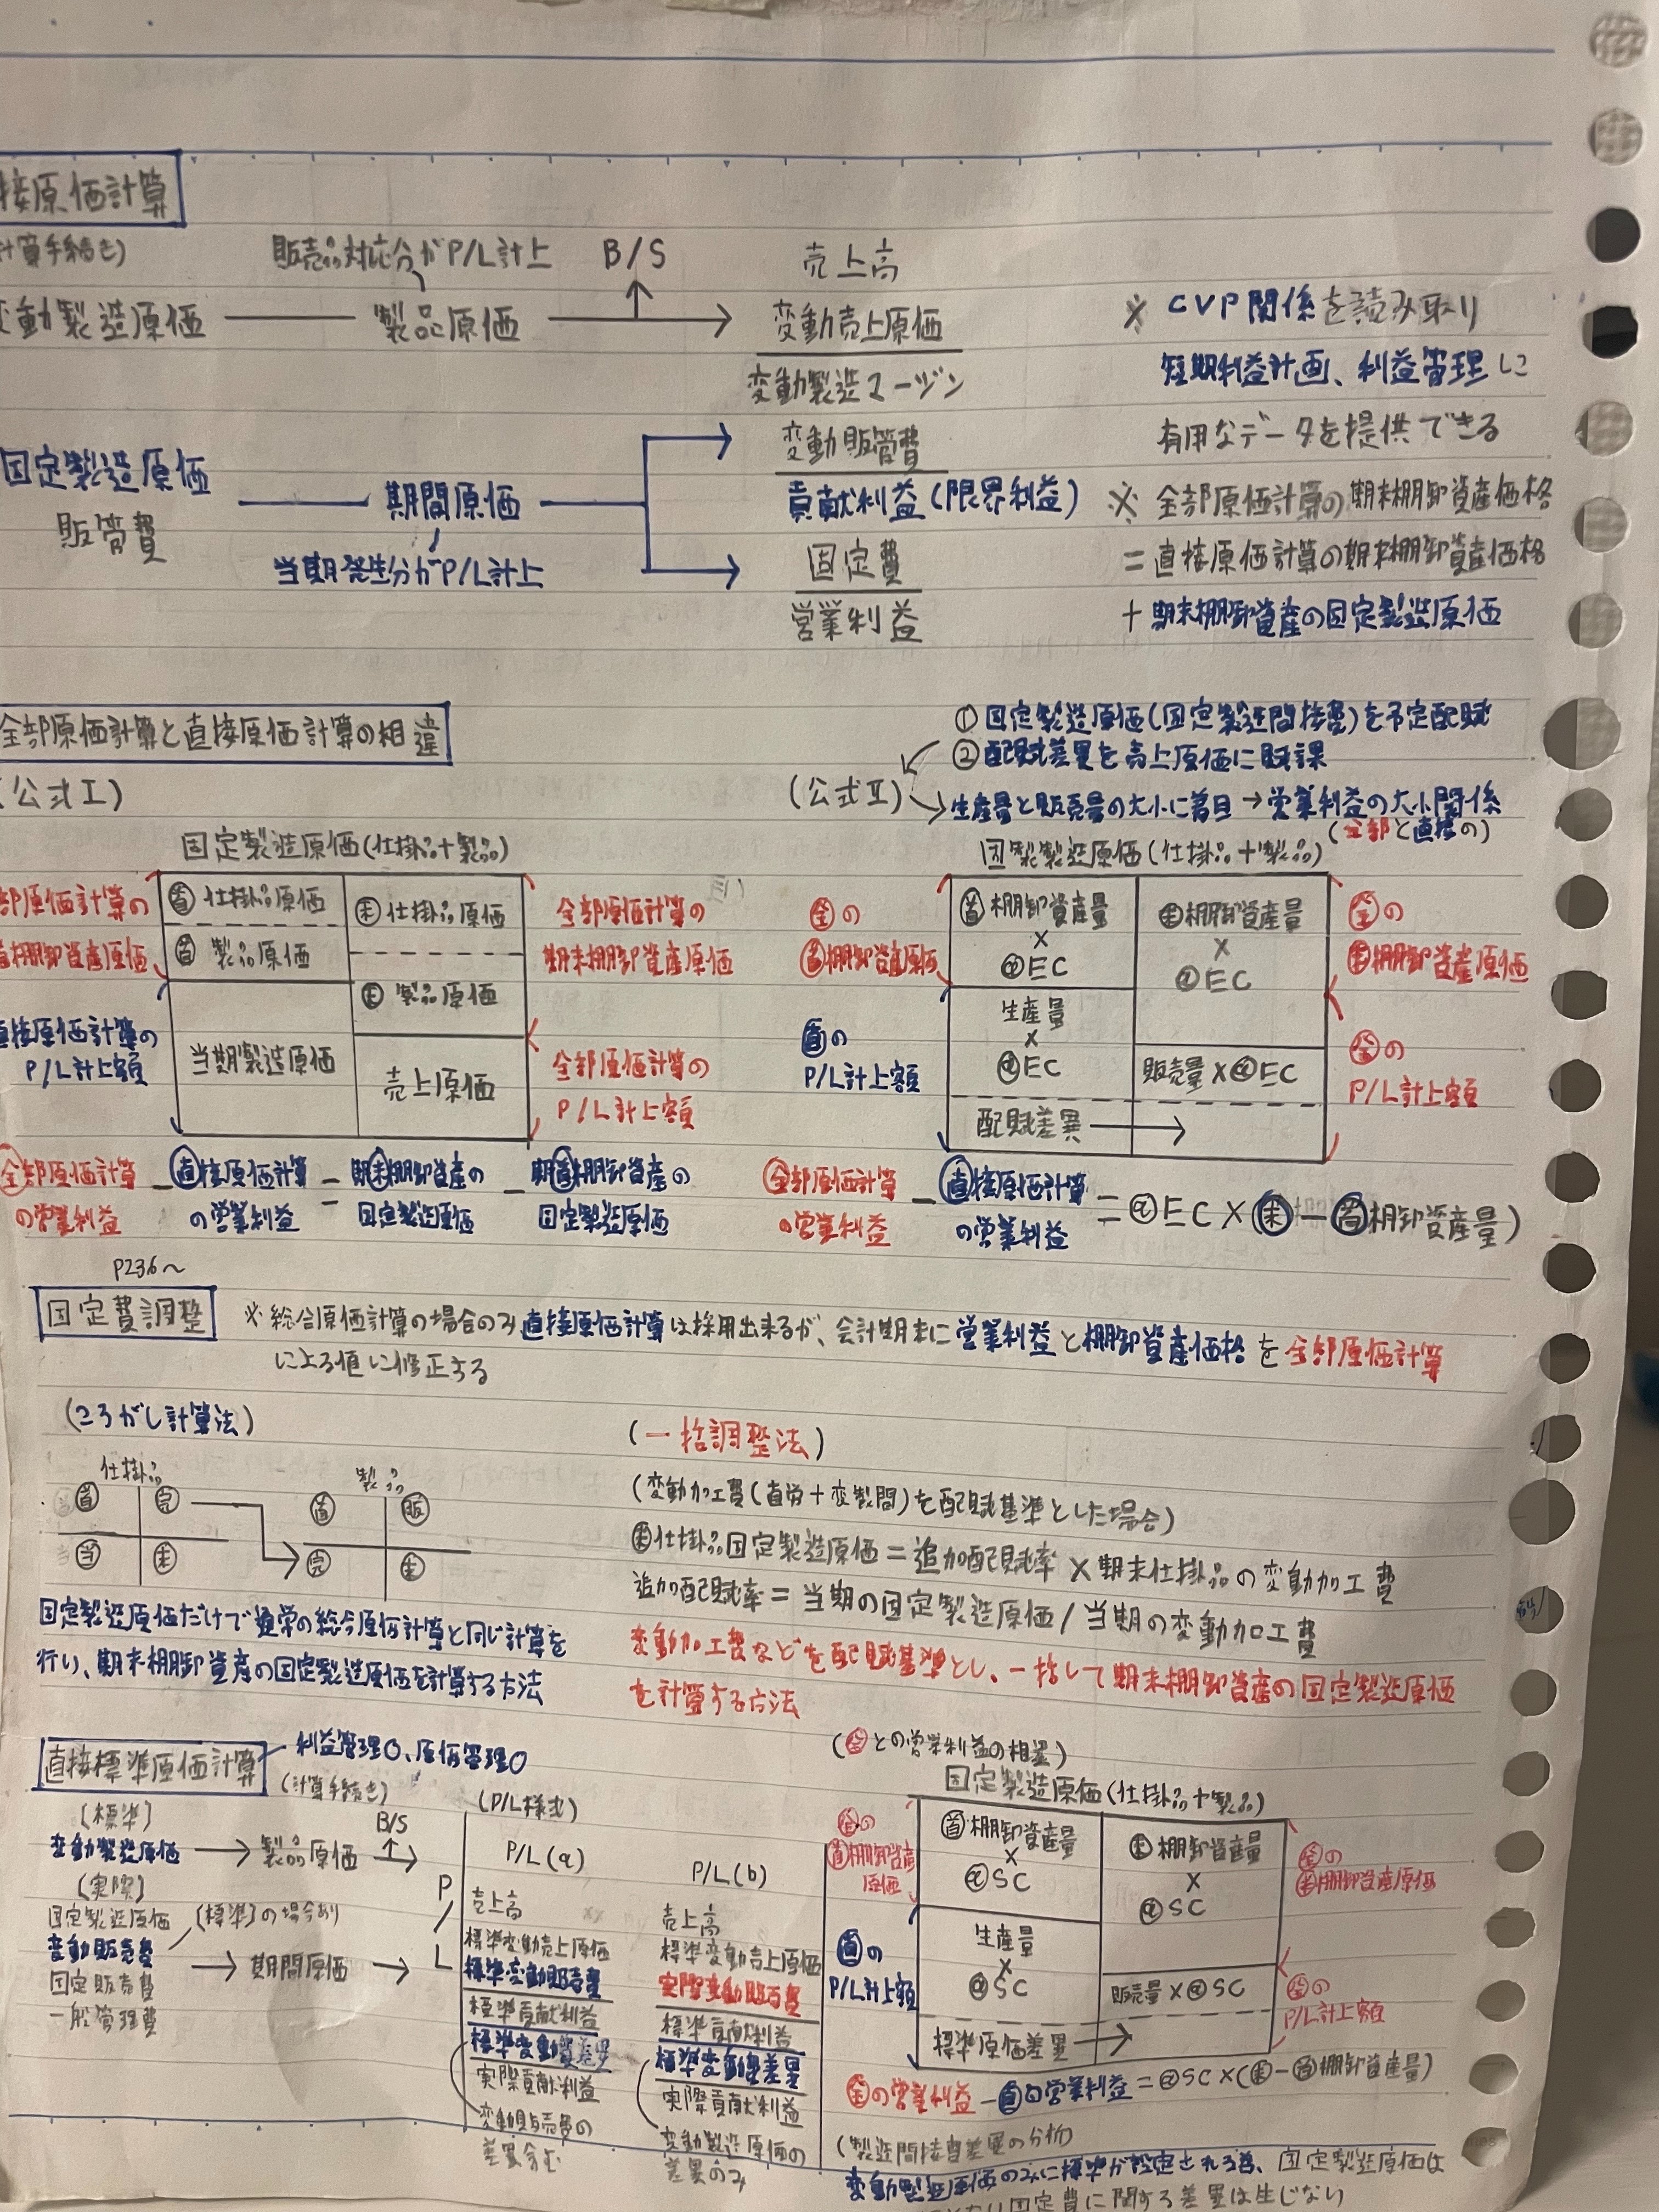 接原価計算
計算手続き)
販売品対応分がP/L計上
B/S
売上高
変動製造原価
製品原価
変動売上原価
変動製造マージン
変動販管費
貢献利益(限界利益)
固定費
営業利益
固定製造原価
販管費
期間原価
当期発生分がP/L計上
※ CVP関係を読み取り
短期利益計画、利益管理に
有用なデータを提供できる
※ 全部原価計算の期末棚卸資産価格
=直接原価計算の期末棚卸資産価格
+期末棚卸資産の固定製造原価
全部原価計算と直接原価計算の相違
(公式Ⅰ)
固定製造原価(仕掛品+製品)
部原価計算の
首棚卸資産原価
直接原価計算の
P/L計上額
首 仕掛品原価
首 製品原価
当期製造原価
末 仕掛品原価
末 製品原価
売上原価
全部原価計算の
期末棚卸資産原価
全部原価計算の
P/L計上額
全部原価計算の営業利益 − 直接原価計算の営業利益 = 期末棚卸資産の固定製造原価 − 期首棚卸資産の固定製造原価
(公式Ⅱ)
① 固定製造原価(固定製造間接費)を予定配賦
② 配賦差異を売上原価に賦課
生産量と販売量の大小に着目→営業利益の大小関係
(全部と直接の)
固製製造原価(仕掛品+製品)
全の
首棚卸資産原価
直の
P/L計上額
首棚卸資産量
×
@EC
生産量
×
@EC
配賦差異
末棚卸資産量
×
@EC
販売量×@EC
全の
末棚卸資産原価
全の
P/L計上額
全部原価計算の営業利益 − 直接原価計算の営業利益 = @EC×(末−首棚卸資産量)
P236〜
固定費調整
※総合原価計算の場合のみ直接原価計算は採用出来るが、会計期末に営業利益と棚卸資産価格を全部原価計算
による値に修正する
(ころがし計算法)
仕掛品
製品
首 完
当 末
首 販
完 末
固定製造原価だけで通常の総合原価計算と同じ計算を
行い、期末棚卸資産の固定製造原価を計算する方法
(一括調整法)
(変動加工費(直労+変製間)を配賦基準とした場合)
末仕掛品固定製造原価=追加配賦率×期末仕掛品の変動加工費
追加配賦率=当期の固定製造原価/当期の変動加工費
変動加工費などを配賦基準とし、一括して期末棚卸資産の固定製造原価
を計算する方法
直接標準原価計算
利益管理○、原価管理○
(計算手続き)
[標準]
変動製造原価
製品原価
B/S
[実際]
固定製造原価
[標準]の場合あり
変動販売費
固定販売費
一般管理費
期間原価
P/L
(P/L様式)
P/L(a)
売上高
標準変動売上原価
標準変動販売費
標準貢献利益
標準変動費差異
実際貢献利益
変動販売費の
差異含む
P/L(b)
売上高
標準変動売上原価
実際変動販売費
標準貢献利益
標準変動費差異
実際貢献利益
変動製造原価の
差異のみ
(全との営業利益の相違)
固定製造原価(仕掛品+製品)
全の
首棚卸資産
原価
直の
P/L計上額
首棚卸資産量
×
@SC
生産量
×
@SC
標準原価差異
末棚卸資産量
×
@SC
販売量×@SC
全の
末棚卸資産原価
全の
P/L計上額
全の営業利益−直の営業利益=@SC×(末−首棚卸資産量)
(製造間接費差異の分析)
変動製造原価のみに標準が設定される為、固定製造原価は
固定費に関する差異は生じない